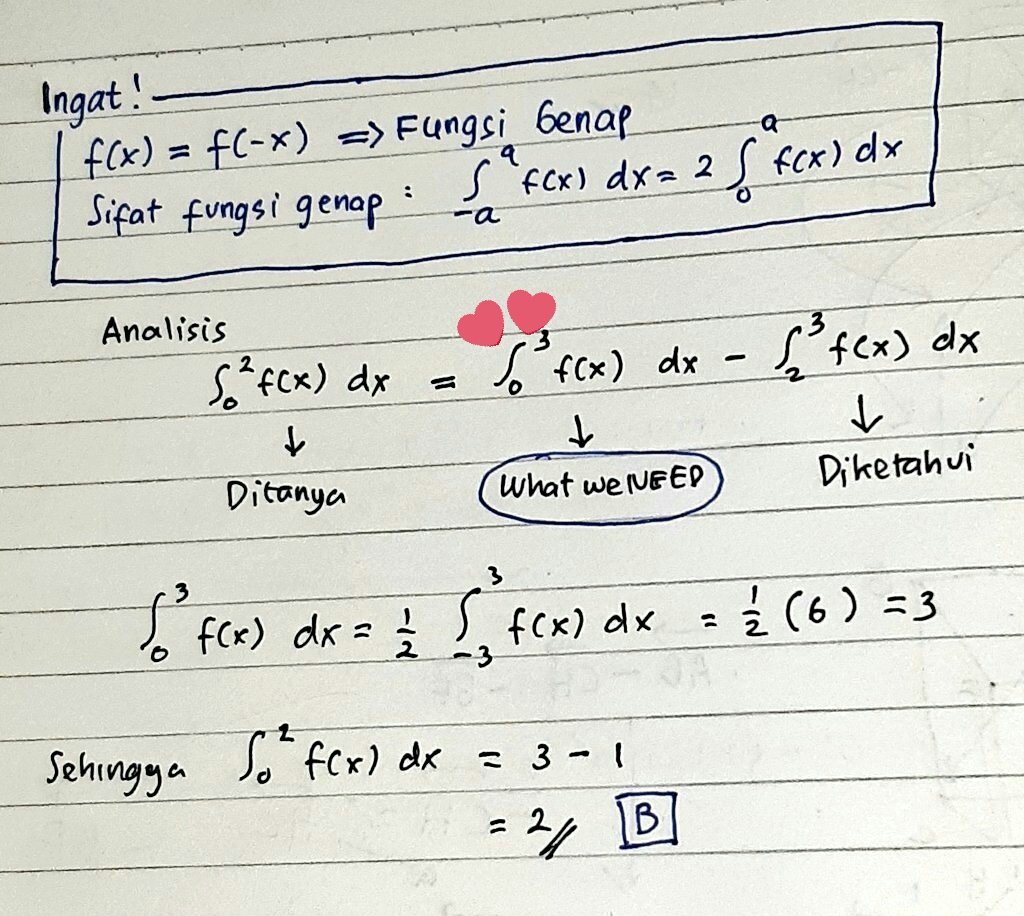 Ingat!
f(x) = f(-x) => Fungsi Genap
Sifat fungsi genap : ∫_{-a}^{a} f(x) dx = 2 ∫_{0}^{a} f(x) dx
Analisis
∫_{0}^{2} f(x) dx = ∫_{0}^{3} f(x) dx - ∫_{2}^{3} f(x) dx
↓ ↓ ↓
Ditanya What we NEED Diketahui
∫_{0}^{3} f(x) dx = 1/2 ∫_{-3}^{3} f(x) dx = 1/2 (6) = 3
Sehingga ∫_{0}^{2} f(x) dx = 3 - 1
= 2// B